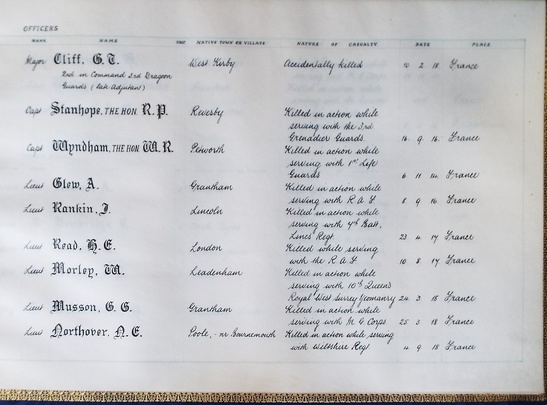 OFFICERS
RANK NAME NATIVE TOWN OR VILLAGE NATURE OF CASUALTY DATE PLACE
Major Cliff. G.T. West Kirby Accidentally killed 10 2 18 France
2nd in Command 3rd Dragoon
Guards (late Adjutant)
Capt Stanhope, THE HON. R.P. Revesby Killed in action while
serving with the 3rd
Grenadier Guards 16 9 16 France
Capt Wyndham, THE HON. W.R. Petworth Killed in action while
serving with 1st Life
Guards 6 11 14 France
Lieut Glew, A. Grantham Killed in action while
serving with R A F 8 9 16 France
Lieut Rankin, J. Lincoln Killed in action while
serving with 4th Batt.
Lincs Regt 23 4 17 France
Lieut Read, H.E. London Killed while serving
with the R A F 10 8 17 France
Lieut Morley, W. Leadenham Killed in action while
serving with 10th Queens
Royal West Surrey Yeomanry 24 3 18 France
Lieut Musson, G.G. Grantham Killed in action while
serving with M G Corps 25 3 18 France
Lieut Northover, N.E. Poole, nr Bournemouth Killed in action while serving
with Wiltshire Regt 4 9 18 France